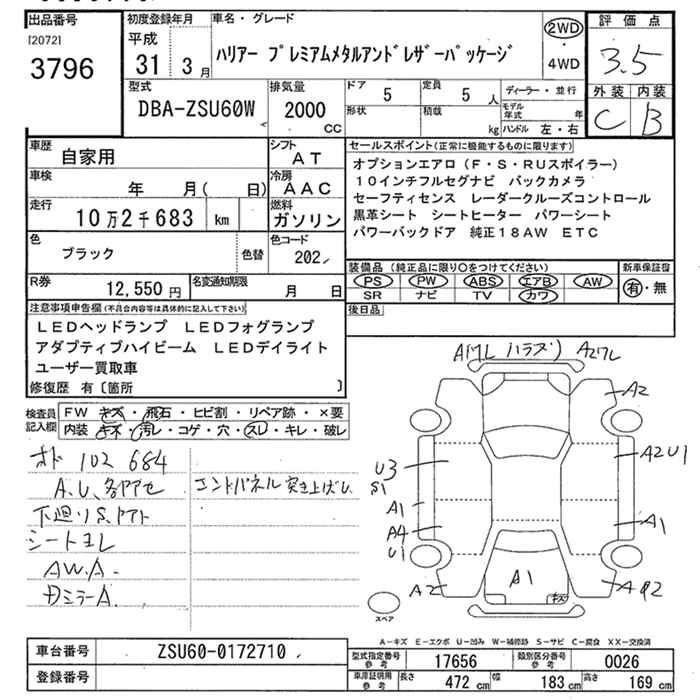 出品番号
[2072]
3796
初度登録年月
平成
31 3月
車名・グレード
ハリアー プレミアムメタルアンドレザーパッケージ
2WD
・
4WD
評価点
3.5
外装 内装
C B
型式
DBA-ZSU60W
排気量
2000
CC
ドア 5
定員 5 人
形状
積載 kg
ディーラー・並行
モデル年式 年
ハンドル 左・右
車歴 自家用
シフト AT
車検 年 月( 日)
冷房 AAC
走行 10万2千683 km
燃料 ガソリン
色 ブラック
色替
色コード 202
R券 12,550円
名変通知期限 月 日
セールスポイント(正常に機能するものに限ります)
オプションエアロ(F・S・RUスポイラー)
10インチフルセグナビ バックカメラ
セーフティセンス レーダークルーズコントロール
黒革シート シートヒーター パワーシート
パワーバックドア 純正18AW ETC
装備品(純正品に限り○をつけてください)
PS PW ABS エアB AW
SR ナビ TV カワ
新車保証書
有・無
後日品
注意事項申告欄(不具合内容等は具体的に記入して下さい)
LEDヘッドランプ LEDフォグランプ
アダプティブハイビーム LEDデイライト
ユーザー買取車
修復歴 有〔箇所 〕
検査員記入欄
FW キズ・飛石・ヒビ割・リペア跡・×要
内装 キズ・汚レ・コゲ・穴・スレ・キレ・破レ
オド 102 684
A.U.各ヤアセ
コントパネル突き上げU
下廻りS.ヤフト
シートヨレ
AW.A.
DミラーA.
A(ワレ ハラズ) A2ワレ
A2
U3
S1
A2U1
A1
A1
A4
U1
A1
キズ
A2
スペア
A-キズ E-エクボ U-凹み W-補修跡 S-サビ C-腐食 XX-交換済
車台番号 ZSU60-0172710
登録番号
型式指定番号 参考 17656
類別区分番号 参考 0026
車庫証明用 参考
長さ 472 cm 幅 183 cm 高さ 169 cm